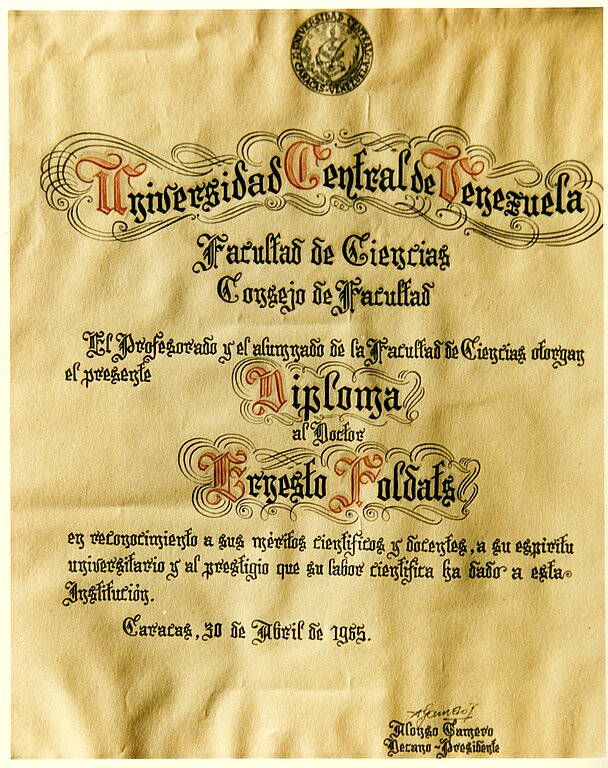 UNIVERSIDAD CENTRAL
CARACAS-VENEZUELA
Universidad Central de Venezuela
Facultad de Ciencias
Consejo de Facultad
El Profesorado y el alumnado de la Facultad de Ciencias otorgan
el presente
Diploma
al Doctor
Ernesto Foldats
en reconocimiento a sus méritos científicos y docentes, a su espíritu
universitario y al prestigio que su labor científica ha dado a esta
Institución.
Caracas, 30 de Abril de 1965.
Alonso Gamero
Decano-Presidente